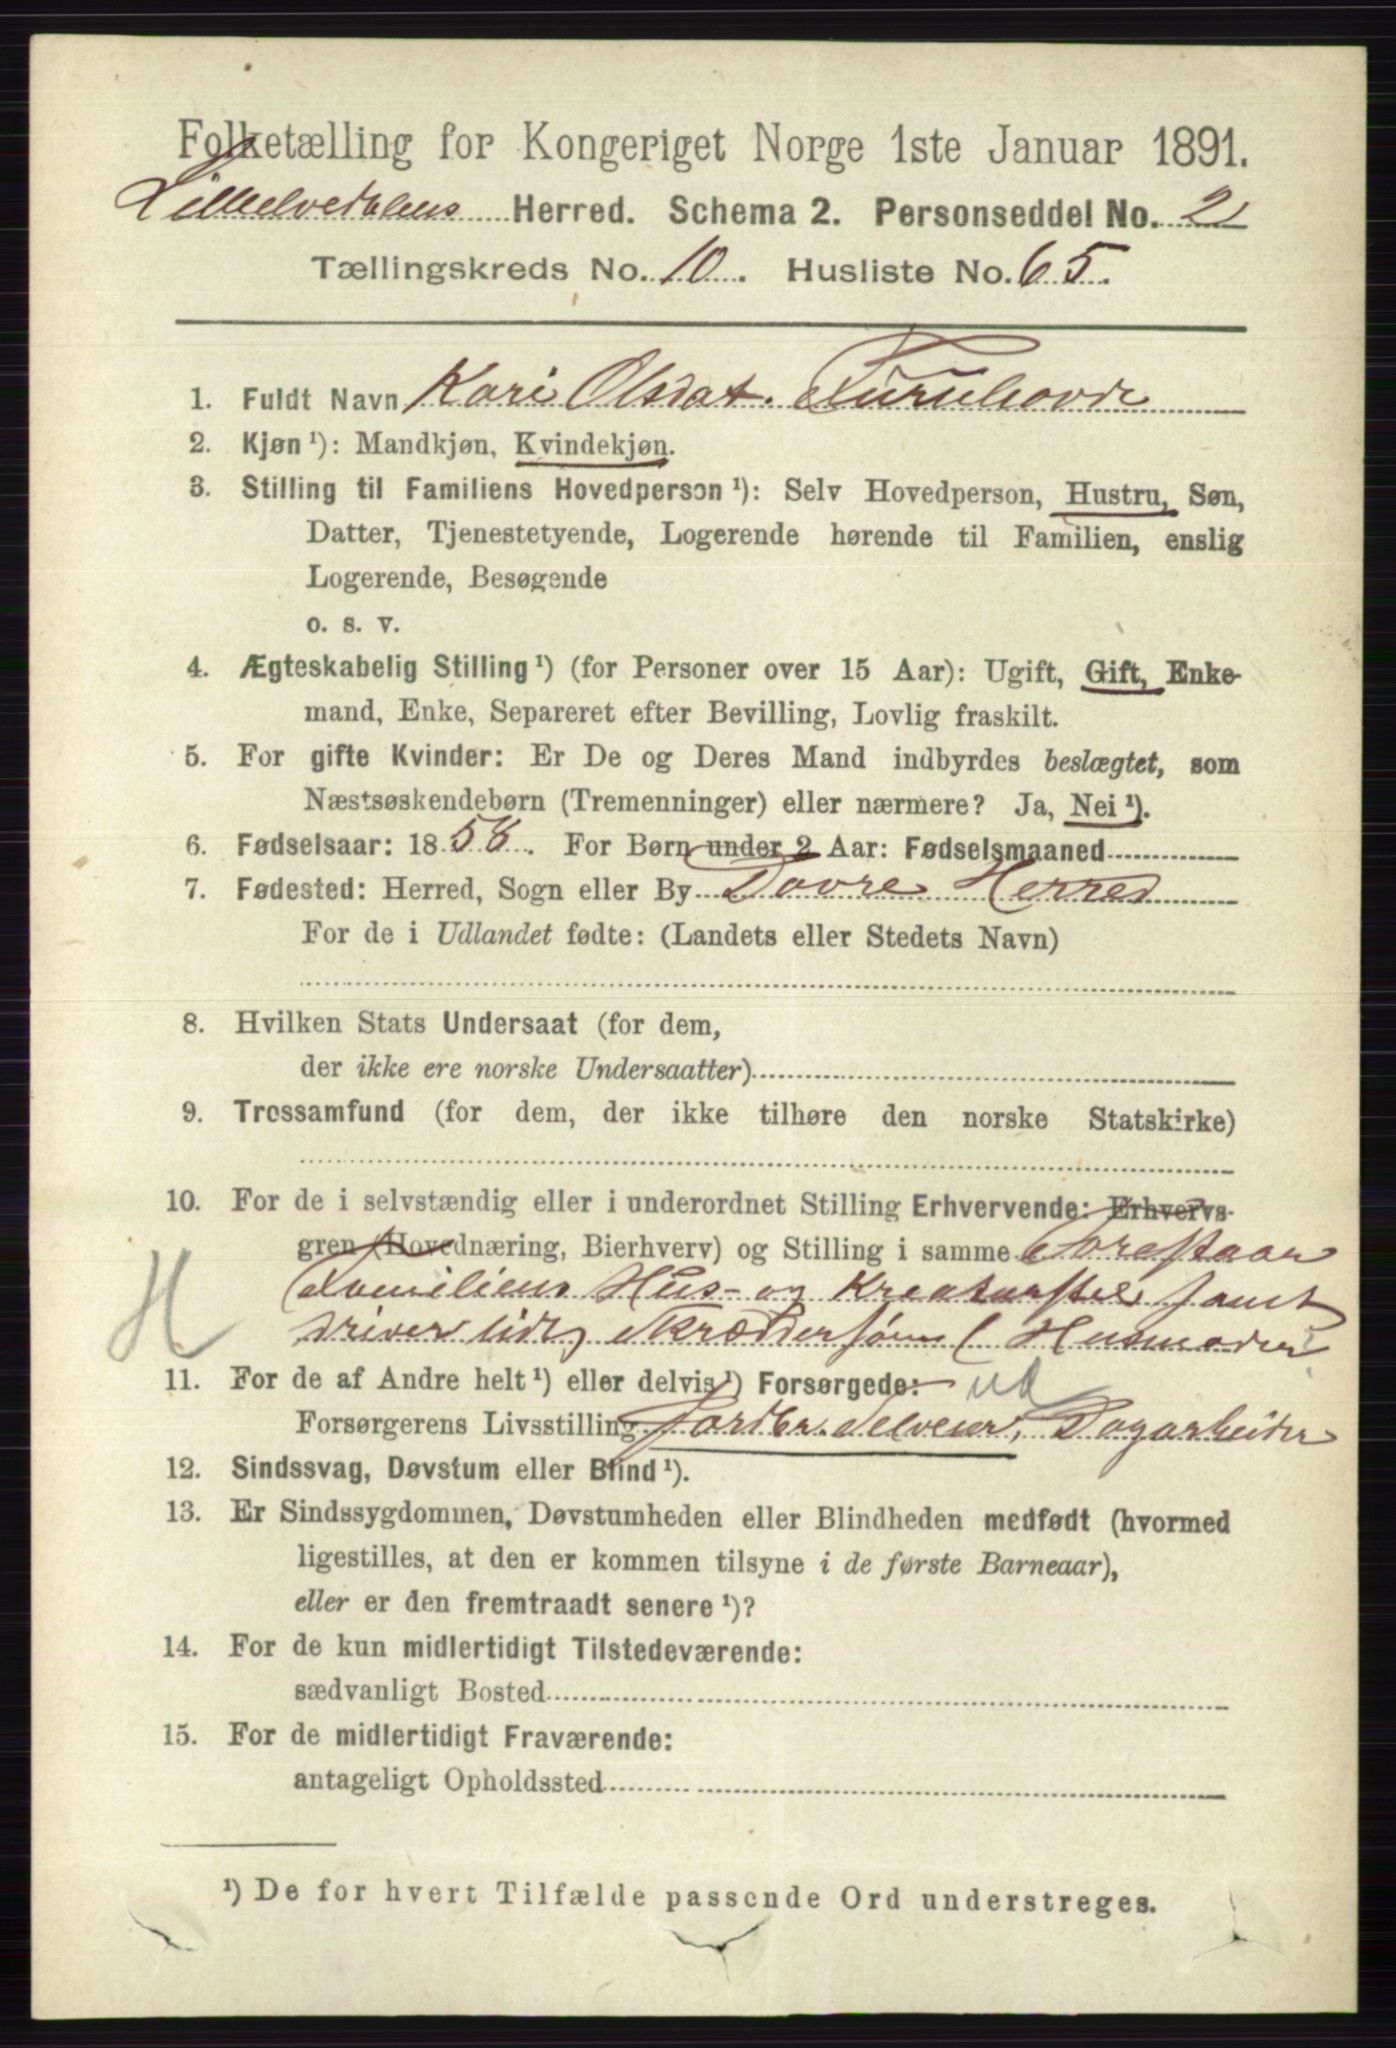 Folketælling for Kongeriget Norge 1ste Januar 1891.
Lilleelvedalens Herred. Schema 2. Personseddel No. 2
Tællingskreds No. 10. Husliste No. 65.
1. Fuldt Navn Kari Olsdat. Furuhovde
2. Kjøn ¹): Mandkjøn, Kvindekjøn.
3. Stilling til Familiens Hovedperson ¹): Selv Hovedperson, Hustru, Søn,
Datter, Tjenestetyende, Logerende hørende til Familien, enslig
Logerende, Besøgende
o. s. v.
4. Ægteskabelig Stilling ¹) (for Personer over 15 Aar): Ugift, Gift, Enke-
mand, Enke, Separeret efter Bevilling, Lovlig fraskilt.
5. For gifte Kvinder: Er De og Deres Mand indbyrdes beslægtet, som
Næstsøskendebørn (Tremenninger) eller nærmere? Ja, Nei ¹).
6. Fødselsaar: 1858. For Børn under 2 Aar: Fødselsmaaned
7. Fødested: Herred, Sogn eller By Dovre Herred
For de i Udlandet fødte: (Landets eller Stedets Navn)
8. Hvilken Stats Undersaat (for dem,
der ikke ere norske Undersaatter)
9. Trossamfund (for dem, der ikke tilhøre den norske Statskirke)
10. For de i selvstændig eller i underordnet Stilling Erhvervende: Erhvervs-
gren (Hovednæring, Bierhverv) og Stilling i samme Forestaar
Familiens Hus- og Kreaturstel samt
H driver lidt Skræddersøm (Husmoder
11. For de af Andre helt ¹) eller delvis ¹) Forsørgede: ud
Forsørgerens Livsstilling Jordbr. Selveier, Dagarbeider
12. Sindssvag, Døvstum eller Blind ¹).
13. Er Sindssygdommen, Døvstumheden eller Blindheden medfødt (hvormed
ligestilles, at den er kommen tilsyne i de første Barneaar),
eller er den fremtraadt senere ¹)?
14. For de kun midlertidigt Tilstedeværende:
sædvanligt Bosted
15. For de midlertidigt Fraværende:
antageligt Opholdssted
¹) De for hvert Tilfælde passende Ord understreges.